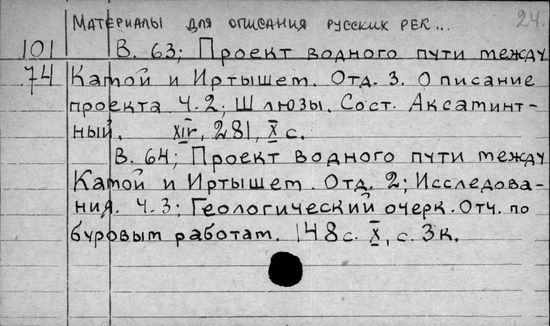 Материалы для описания русских рек... 24.
101 В. 63; Проект водного пути между
74 Камой и Иртышем. Отд. 3. Описание
проекта Ч. 2; Шлюзы. Сост. Аксамит-
ный. XIV, 281, X с.
В. 64; Проект водного пути между
Камой и Иртышем. Отд. 2; Исследова-
ния. Ч. 3; Геологический очерк. Отч. по
буровым работам. 148 с. X, с. 3 к.